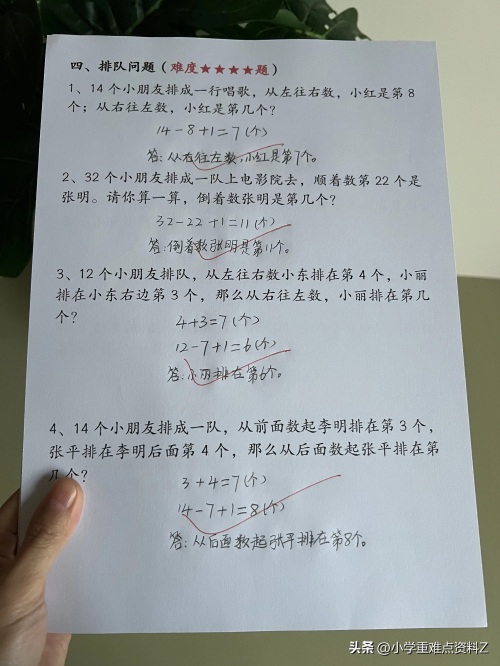 四、排队问题（难度★★★★题）
1、14个小朋友排成一行唱歌，从左往右数，小红是第8
个；从右往左数，小红是第几个？
14-8+1=7(个)
答:从右往左数,小红是第7个。
2、32个小朋友排成一队上电影院去，顺着数第22个是
张明。请你算一算，倒着数张明是第几个？
32-22+1=11(个)
答:倒着数张明是第11个。
3、12个小朋友排队，从左往右数小东排在第4个，小丽
排在小东右边第3个，那么从右往左数，小丽排在第几
个？
4+3=7(个)
12-7+1=6(个)
答:小丽排在第6个。
4、14个小朋友排成一队，从前面数起李明排在第3个，
张平排在李明后面第4个，那么从后面数起张平排在第
几个？
3+4=7(个)
14-7+1=8(个)
答:从后面数起张平排在第8个。
头条@小学重难点资料Z